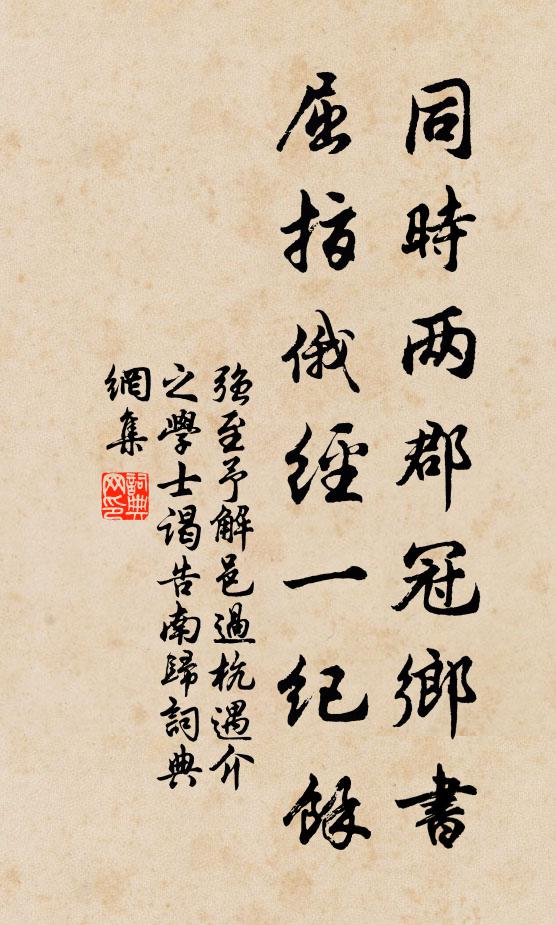 同時两郡冠鄉書
屈指俄經一紀餘
強至予解邑過杭遇介
之學士謁告南歸詞典
網集
詞典
网印